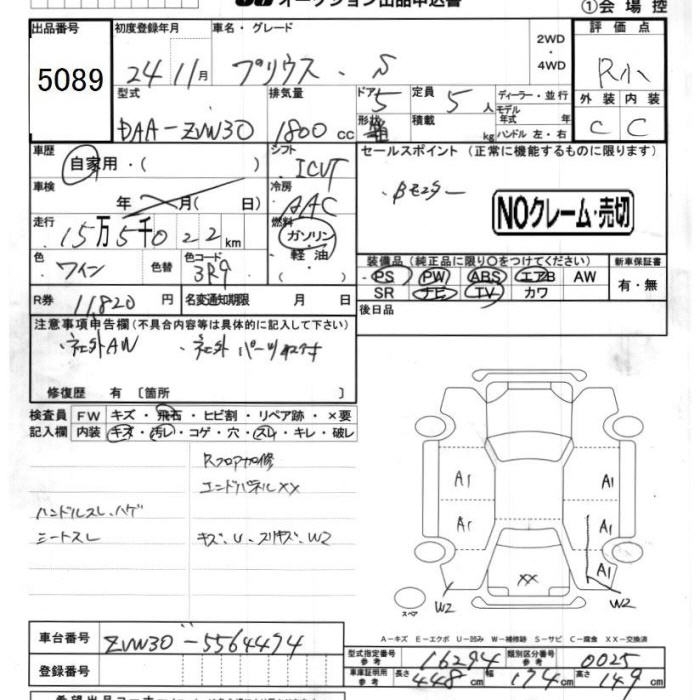 オークション出品申込書
①会場控
出品番号
5089
初度登録年月
24 11月
車名・グレード
プリウス・S
2WD
・
4WD
評価点
R小
外装 内装
C C
型式
DAA-ZVW30
排気量
1800 cc
ドア 5
形状
定員 5人
積載 kg
ディーラー・並行
モデル
年式 年
ハンドル 左・右
車歴
自家用・( )
シフト
車検
年 月( 日)
冷房
AAC
走行
15万5千022km
燃料
ガソリン
軽油
( )
色
ワイン 色替
色コード
3R9
R券 11,820円
名変通知期限 月 日
セールスポイント (正常に機能するものに限ります)
NOクレーム・売切
装備品 (純正品に限り〇をつけてください)
PS PW ABS エアB AW
SR ナビ TV カワ
新車保証書
有・無
後日品
注意事項申告欄 (不具合内容等は具体的に記入して下さい)
・社外AW ・社外パーツ取付
修復歴 有 〔箇所 〕
検査員 FW キズ・飛石・ヒビ割・リペア跡・×要
記入欄 内装 キズ・汚レ・コゲ・穴・スレ・キレ・破レ
Rフロア加修
エンドパネルXX
ハンドルスレ、ハゲ
シートスレ キズ、U、スリキズ、W2
A1 A1
A1 A1
A1
XX
W2 W2
スペア
A-キズ E-エクボ U-凹み W-補修跡 S-サビ C-腐食 XX-交換済
車台番号 ZVW30-5564474
登録番号
型式指定番号
参考
16294
類別区分番号
参考
0025
車庫証明用
参考
長さ 448cm 幅 174cm 高さ 149cm